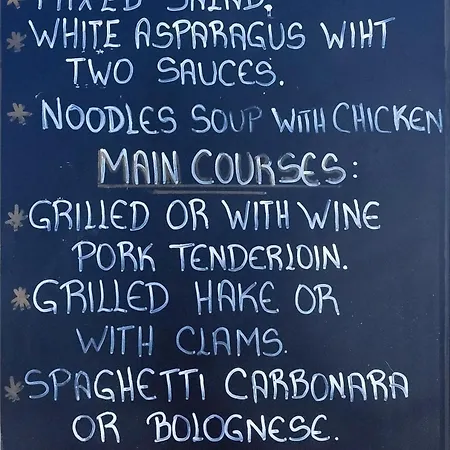 * MIXED SALAD.
* WHITE ASPARAGUS WIHT
TWO SAUCES.
* NOODLES SOUP WITH CHICKEN
MAIN COURSES:
* GRILLED OR WITH WINE
PORK TENDERLOIN.
* GRILLED HAKE OR
WITH CLAMS.
* SPAGHETTI CARBONARA
OR BOLOGNESE.